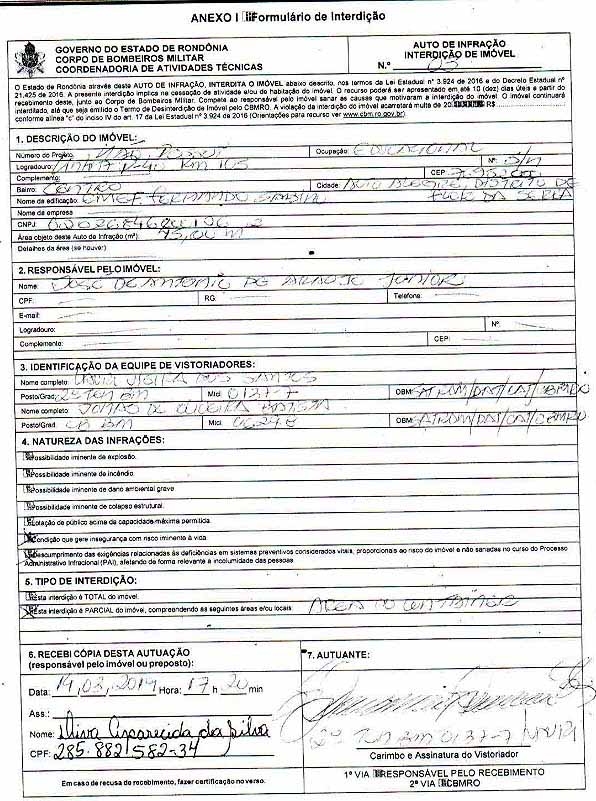 ANEXO I Formulário de Interdição
GOVERNO DO ESTADO DE RONDÔNIA
CORPO DE BOMBEIROS MILITAR
COORDENADORIA DE ATIVIDADES TÉCNICAS
AUTO DE INFRAÇÃO
INTERDIÇÃO DE IMÓVEL
N.º 05
O Estado de Rondônia através deste AUTO DE INFRAÇÃO, INTERDITA O IMÓVEL abaixo descrito, nos termos da Lei Estadual n° 3.924 de 2016 e do Decreto Estadual n°
21.425 de 2016. A presente interdição implica na cessação de atividade e/ou de habitação do imóvel. O recurso poderá ser apresentado em até 10 (dez) dias úteis a partir do
recebimento deste, junto ao Corpo de Bombeiros Militar. Compete ao responsável pelo imóvel sanar as causas que motivaram a interdição do imóvel. O imóvel continuará
interditado, até que seja emitido o Termo de Desinterdição de Imóvel pelo CBMRO. A violação da interdição do imóvel acarretará multa de 20 R$
conforme alínea "c" do inciso IV do art. 17 da Lei Estadual N° 3.924 de 2016 (Orientações para recurso ver www.cbm.ro.gov.br).
1. DESCRIÇÃO DO IMÓVEL:
Número do Projeto: NÃO POSSUI Ocupação: EDUCACIONAL
Logradouro: KM 105 N°: S/N
Complemento: CEP:
Bairro: CENTRO Cidade: DISTRITO DE
Nome da edificação: EMEF FERNANDO SABINO FLOR DA SERRA
Nome da empresa
CNPJ:
Área objeto deste Auto de Infração (m²): 45,00 m
Detalhes da área (se houver)
2. RESPONSÁVEL PELO IMÓVEL:
Nome: JOSÉ DE ANTONIO DE JUNIOR
CPF: RG: Telefone:
E-mail:
Logradouro: N°:
Complemento: CEP:
3. IDENTIFICAÇÃO DA EQUIPE DE VISTORIADORES:
Nome completo: VIEIRA DOS SANTOS
Posto/Grad: 2º TEN BM Micl 0137-7 OBM: /DAT/CAT/CBMRO
Nome completo: DE OLIVEIRA BATISTA
Posto/Grad. CB BM Micl. OBM: /DAT/CAT/CBMRO
4. NATUREZA DAS INFRAÇÕES:
Possibilidade iminente de explosão.
Possibilidade iminente de incêndio.
Possibilidade iminente de dano ambiental grave
Possibilidade iminente de colapso estrutural.
Lotação de público acima da capacidade máxima permitida.
Condição que gere insegurança com risco iminente à vida.
Descumprimento das exigências relacionadas às deficiências em sistemas preventivos considerados vitais, proporcionais ao risco do imóvel e não sanadas no curso do Processo
Administrativo Infracional (PAI), afetando de forma relevante a incolumidade das pessoas
5. TIPO DE INTERDIÇÃO:
Esta interdição é TOTAL do imóvel.
Esta interdição é PARCIAL do imóvel, compreendendo as seguintes áreas e/ou locais: AREA DO CONTAINER
6. RECEBI CÓPIA DESTA AUTUAÇÃO
(responsável pelo imóvel ou preposto):
Data: 14,03,2019 Hora: 17 h 20 min
Ass.:
Nome: Aparecida da Silva
CPF: 285.882.582-34
Em caso de recusa do recebimento, fazer certificação no verso.
7. AUTUANTE:
2º TEN BM 0137-7
Carimbo e Assinatura do Vistoriador
1ª VIA RESPONSÁVEL PELO RECEBIMENTO
2ª VIA CBMRO